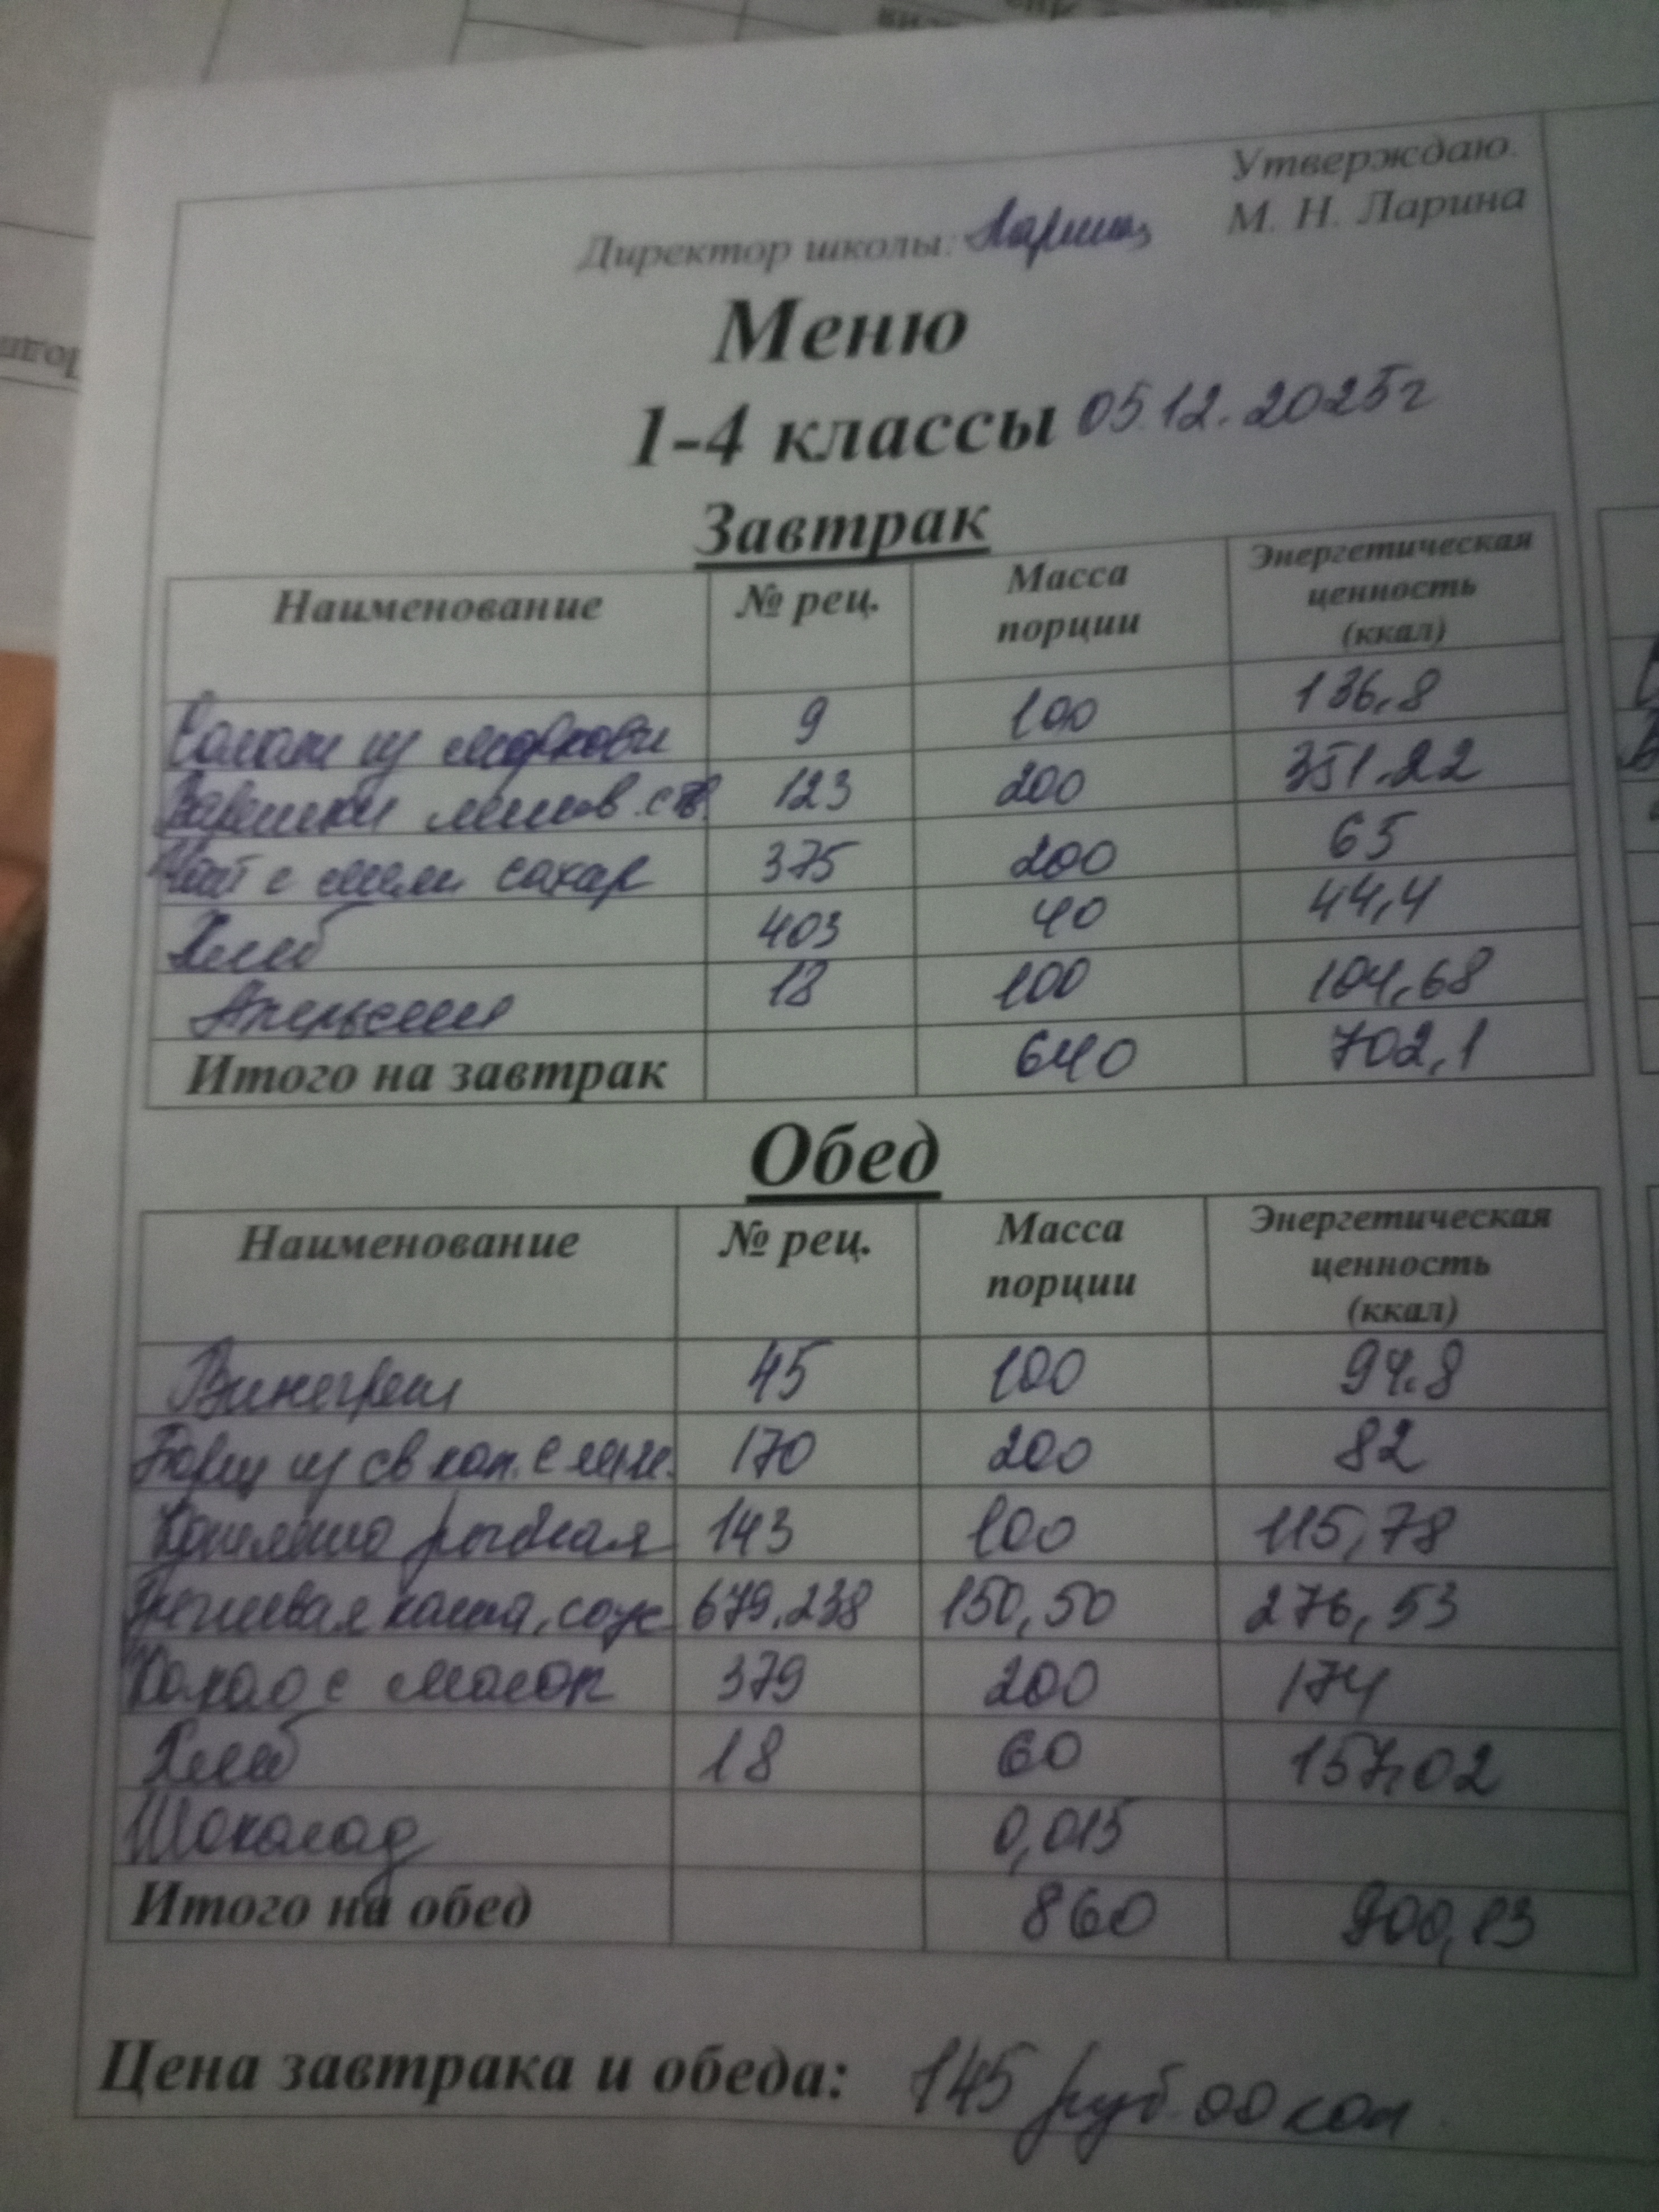 Утверждаю.
Директор школы: М. Н. Ларина
Меню
1-4 классы 05.12.2025г
Завтрак
Наименование № рец. Масса порции Энергетическая ценность (ккал)
Салат из моркови 9 100 136,8
Вареники ленив. с тв. 123 200 351.22
Чай с сахар 375 200 65
Хлеб 403 40 44,4
Апельсин 18 100 104,68
Итого на завтрак 640 702,1
Обед
Наименование № рец. Масса порции Энергетическая ценность (ккал)
Винегрет 45 100 94.8
Борщ из св кап. с 170 200 82
Котлета рыбная 143 100 115,78
Гречневая каша, соус 679.238 150,50 276,53
Какао с молок 379 200 174
Хлеб 18 60 157,02
Шоколад 0,015
Итого на обед 860 900,13
Цена завтрака и обеда: 145 руб. 00 коп